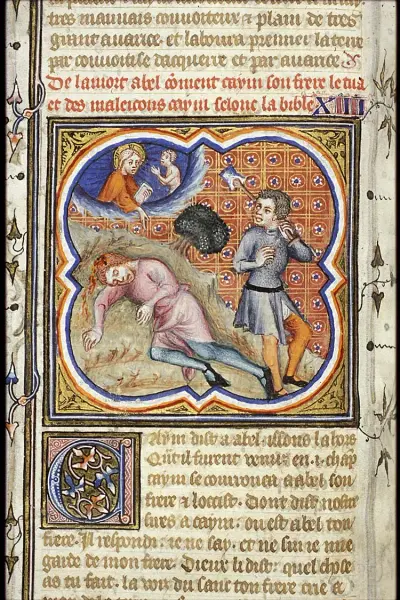 tres mauuais couuoiteux ⁊ plain de tres
grant auarice · et laboura premier la terre
par couuoitise dacquerre et par auarice
De la mort abel cōment caym son frere le tua
et des maleicons caym selonc la bible XIII
Caym dist a abel · issons la hors
Quil furent venuz en · i · chāp
caym se courouca a abel son
frere ⁊ loccist · Dont dist nostre
sires a caym · ou est abel ton
frere · Il respondi · ie ne say · et ne sui ie mie
garde de mon frere · Dieux li dist · quel chose
as tu fait · la voix du sanc ton frere crie a